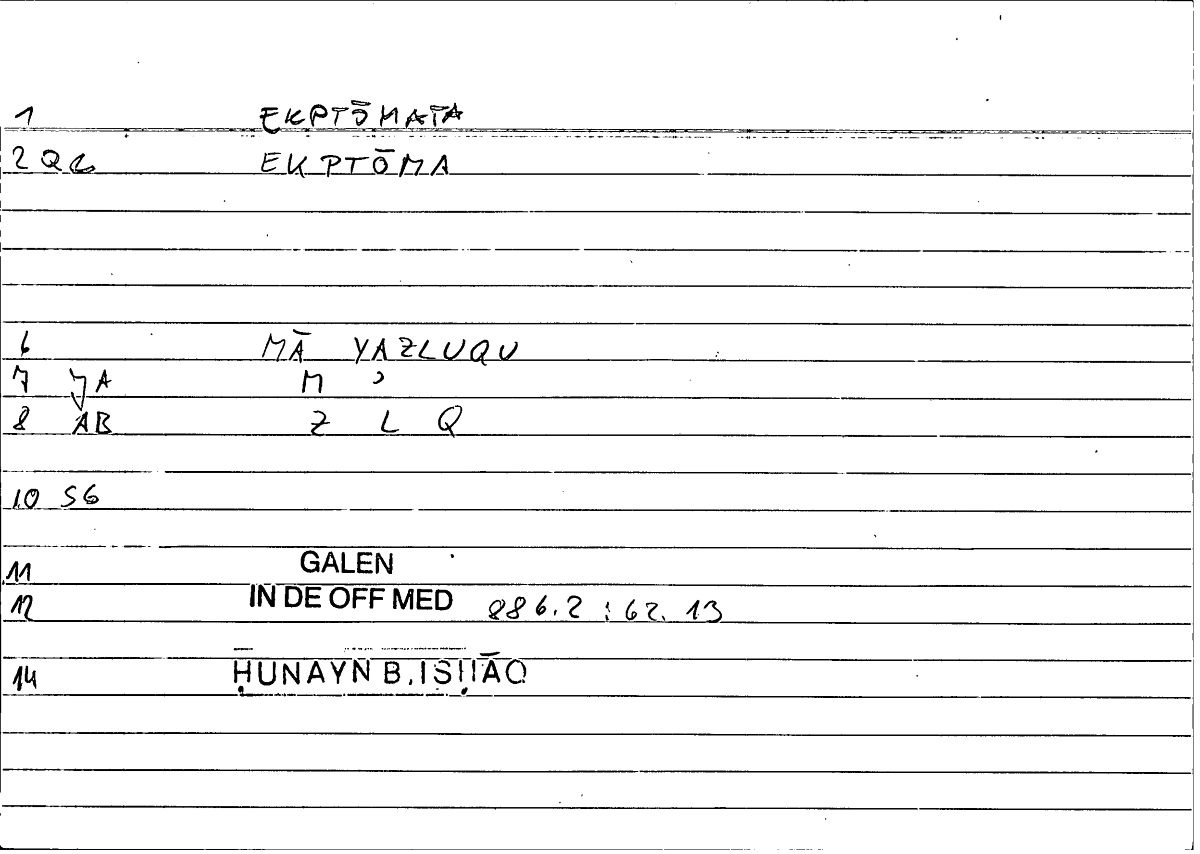 1 EKPTŌMATA
2 QC EKPTŌMA
6 MĀ YAZLUQU
7 JA M ʾ
8 AB Z L Q
10 SG
11 GALEN
12 IN DE OFF MED 886.2 : 62.13
14 ḤUNAYN B. ISḤĀQ